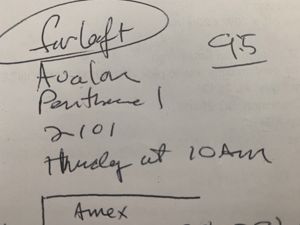 95
Avalon
Penthouse 1
2101
Thursday at 10 Am
Amex